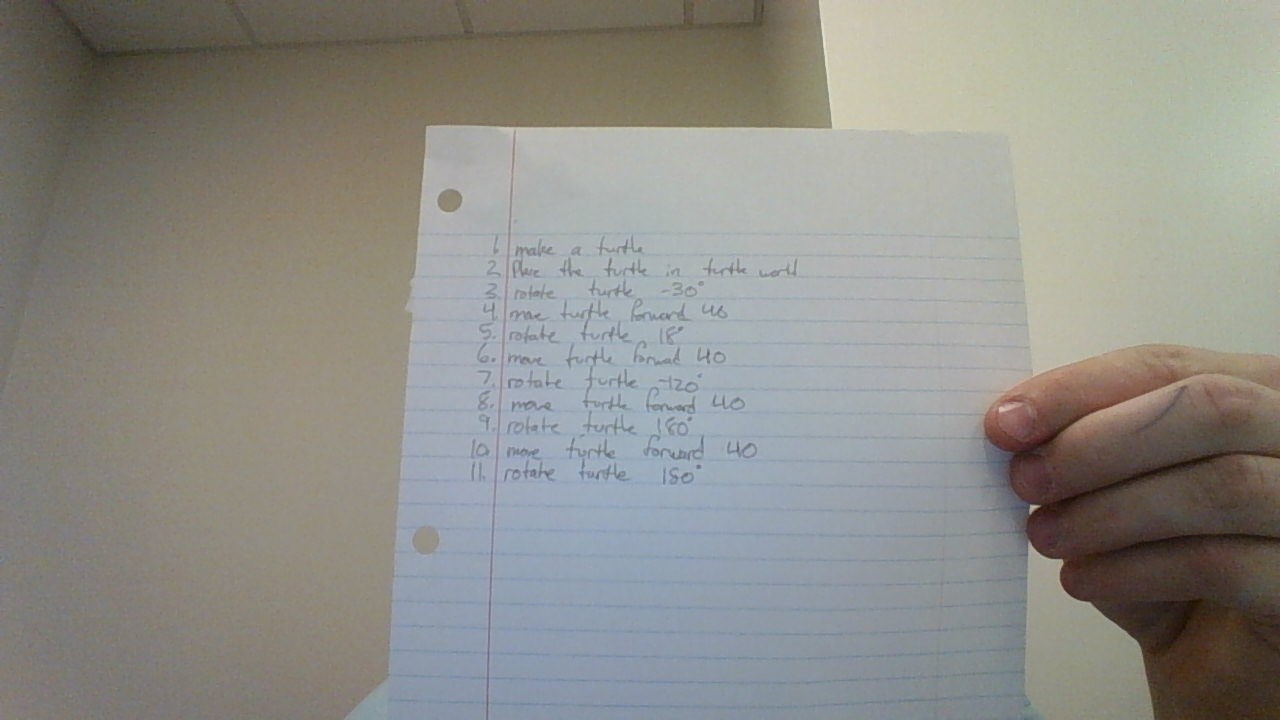 1. make a turtle
2. Place the turtle in turtle world
3. rotate turtle -30°
4. move turtle forward 40
5. rotate turtle 18°
6. move turtle forward 40
7. rotate turtle -120°
8. move turtle forward 40
9. rotate turtle 180°
10. move turtle forward 40
11. rotate turtle 180°